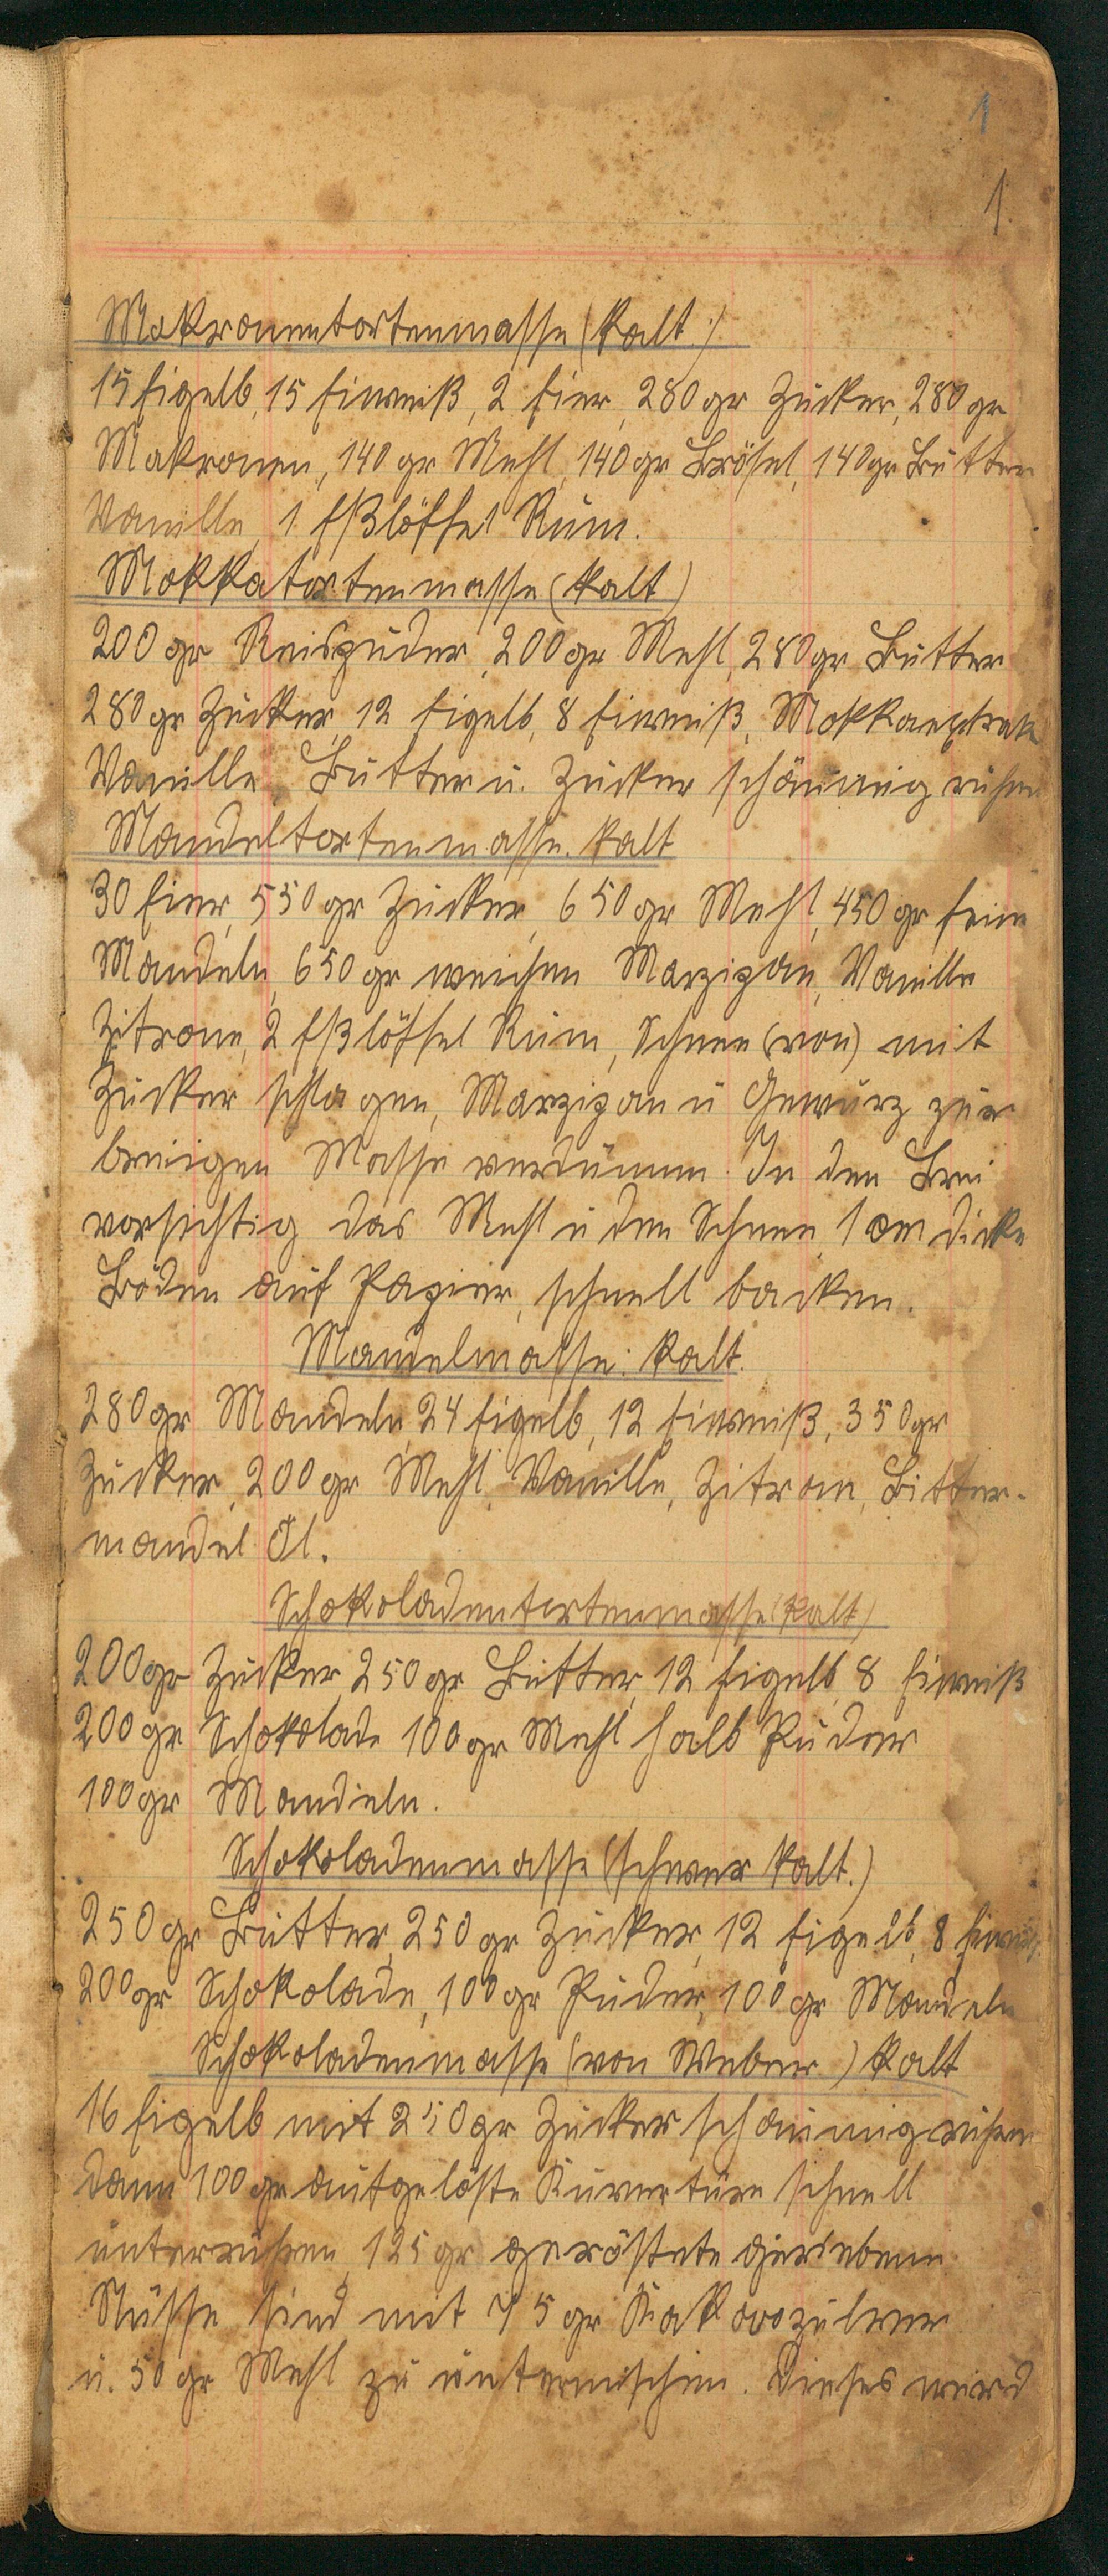 1
1.
Makronentortenmasse (kalt.)
15 Eigelb, 15 Eiweiß, 2 Eier, 280 gr Zucker, 280 gr
Makronen, 140 gr Mehl, 140 gr Brösel, 140 gr Butter
Vanille, 1 Eßlöffel Rum.
Mokkatortenmasse (kalt)
200 gr Reispuder, 200 gr Mehl, 280 gr Butter
280 gr Zucker, 12 Eigelb, 8 Eiweiß, Mokkaextrakt
Vanille, Butter u. Zucker schäumig rühren
Mandeltortenmasse. kalt
30 Eier, 550 gr Zucker, 650 gr Mehl, 450 gr feine
Mandeln, 650 gr weichen Marzipan, Vanille
Zitrone, 2 Eßlöffel Rum, Schnee (von) mit
Zucker schlagen, Marzipan u Gewürz zur
breiigen Masse verdünnen. In den Brei
vorsichtig das Mehl u den Schnee, 1 cm dicke
Böden auf Papier, schnell backen.
Mandelmasse: kalt.
280 gr Mandeln, 24 Eigelb, 12 Eiweiß, 350 gr
Zucker, 200 gr Mehl, Vanille, Zitrone, Bitter-
mandel Öl.
Schokoladentortenmasse (kalt)
200 gr Zucker, 250 gr Butter, 12 Eigelb, 8 Eiweiß
200 gr Schokolade 100 gr Mehl halb Puder
100 gr Mandeln.
Schokoladenmasse (schwer kalt.)
250 gr Butter, 250 gr Zucker, 12 Eigelb, 8 Eiweiß,
200 gr Schokolade, 100 gr Puder, 100 gr Mandeln
Schokoladenmasse (von Weber) kalt
16 Eigelb mit 250 gr Zucker schaumig rühren
dann 100 gr aufgelöste Kuvertüre schnell
unterrühren, 125 gr geröstete geriebene
Nüsse sind mit 75 gr Kakaopulver
u. 50 gr Mehl zu untermischen. Dieses wird